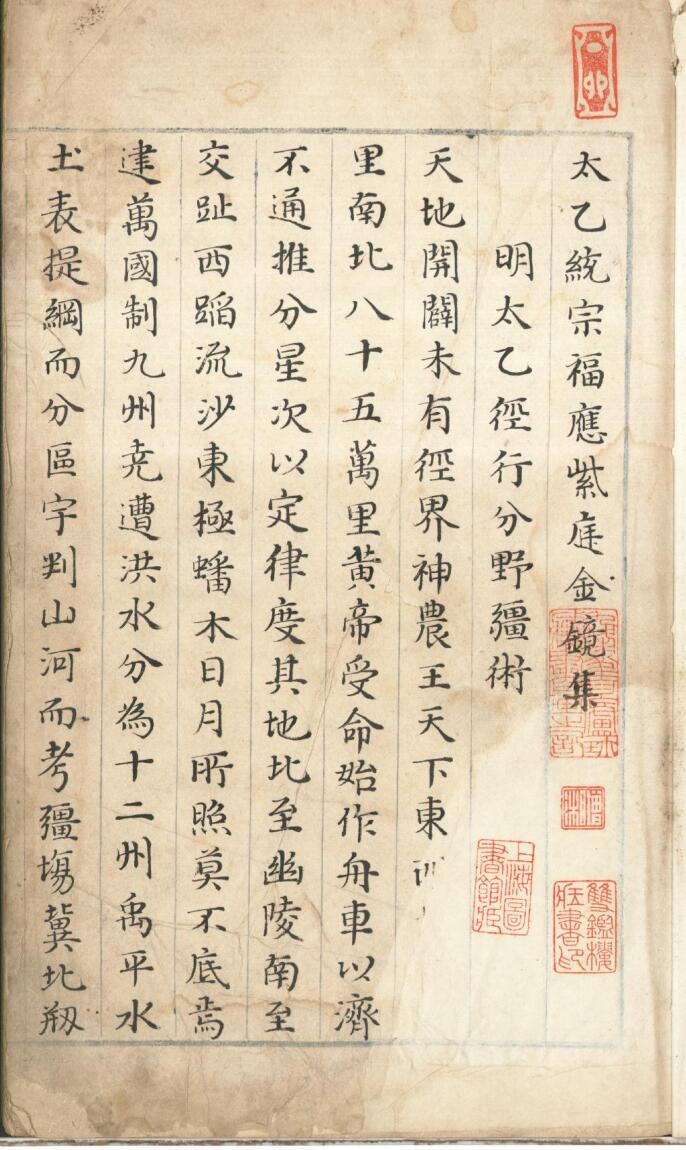 太乙統宗福應紫庭金鏡集
明太乙徑行分野疆術
天地開闢未有徑界神農王天下東
里南北八十五萬里黃帝受命始作舟車以濟
不通推分星次以定律度其地北至幽陵南至
交趾西蹈流沙東極蟠木日月所照莫不底焉
建萬國制九州堯遭洪水分為十二州禹平水
土表提綱而分區宇判山河而考疆場冀北剏
上海圖書館藏
雙鑑樓藏書印